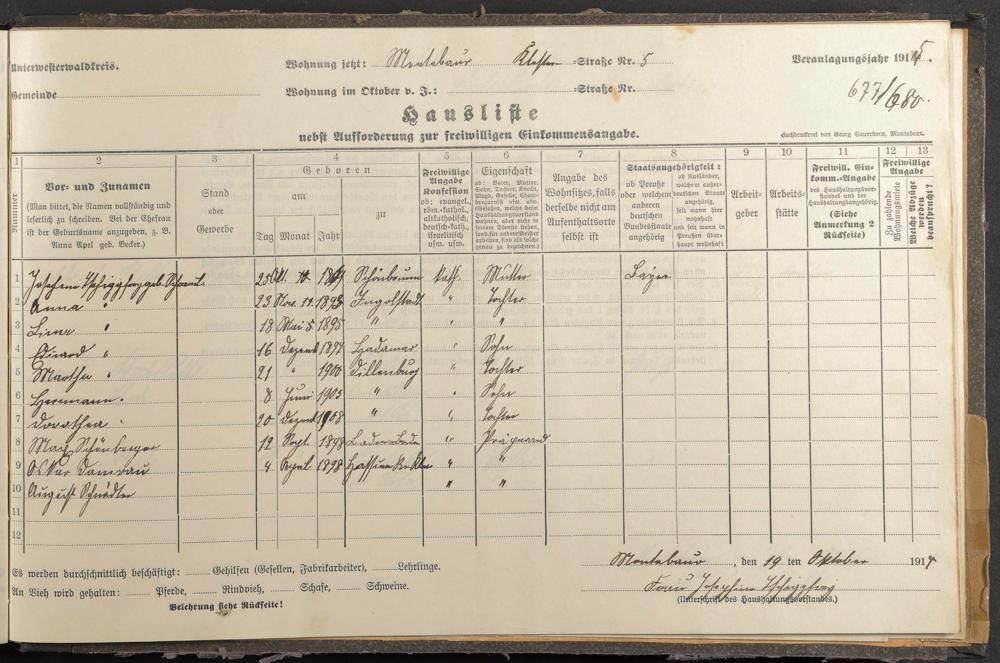 Unterwesterwaldkreis.
Wohnung jetzt: Montabaur Kloster-Straße Nr. 5
Veranlagungsjahr 1915.
Gemeinde
Wohnung im Oktober v. J.: -Straße Nr.
677/680.
Hausliste
nebst Aufforderung zur freiwilligen Einkommensangabe.
Buchdruckerei von Georg Sauerborn, Montabaur.
1 2 3 4 5 6 7 8 9 10 11 12 13
Nummer
Vor- und Zunamen
(Man bittet, die Namen vollständig und
leserlich zu schreiben. Bei der Ehefrau
ist der Geburtsname anzugeben, z. B.
Anna Apel geb. Becker.)
Stand
oder
Gewerbe
Geboren
am
zu
Tag Monat Jahr
Freiwillige
Angabe
Konfession
ob: evangel.,
röm.-kathol.,
altkatholisch
deutsch-kath.,
israelitisch
usw. usw.
Eigenschaft
ob: Vater, Mutter,
Sohn, Tochter, Knecht,
Magd, Geselle, Cham-
bregarnist usw. usw.
(Gesellen, welche beim
Haushaltungsvorstand
wohnen, aber nicht in
seinem Dienste stehen,
sind für andere Meister
arbeiten, sind als solche
genau zu bezeichnen.)
Angabe des
Wohnsitzes, falls
derselbe nicht am
Aufenthaltsorte
selbst ist
Staatsangehörigkeit:
ob Preuße
oder welchem
anderen
deutschen
Bundesstaate
angehörig
ob Ausländer,
welchem außer-
deutschen Staate
angehörig,
seit wann hier
wohnhaft
und seit wann in
Preußen über-
haupt wohnhaft
Arbeit-
geber
Arbeits-
stätte
Freiwill. Ein-
komm.-Angabe
des Haushaltungsvor-
standes und der
Haushaltungsangehörig.
(Siehe
Anmerkung 2
Rückseite)
Freiwillige
Angabe
Zu zahlende
Wohnungsmiete
Welche Abzüge
werden
beansprucht?
1 Josefine geb. 25 Okt. Schönbrunn kath. Mutter Bayer
2 Anna " 23 Nov. 1893 Ingolstadt " Tochter
3 " 18 Mai 1895 " " "
4 " 16 Dezemb 1897 Hadamar " Sohn
5 Martha " 21 " 1900 Dillenburg " Tochter
6 Hermann " 8 Juni 1903 " " Sohn
7 Dorothea " 20 Dezemb 1908 " " Tochter
8 Max Schönberger 12 Sept. 1898 Baden-Baden " Präparand
9 Oskar 4 1898 " "
10 August " "
11
12
Es werden durchschnittlich beschäftigt: Gehilfen (Gesellen, Fabrikarbeiter), Lehrlinge.
An Vieh wird gehalten: Pferde, Rindvieh, Schafe, Schweine.
Belehrung siehe Rückseite!
Montabaur, den 19 ten Oktober 1914
Frau Josephine
(Unterschrift des Haushaltungsvorstandes.)